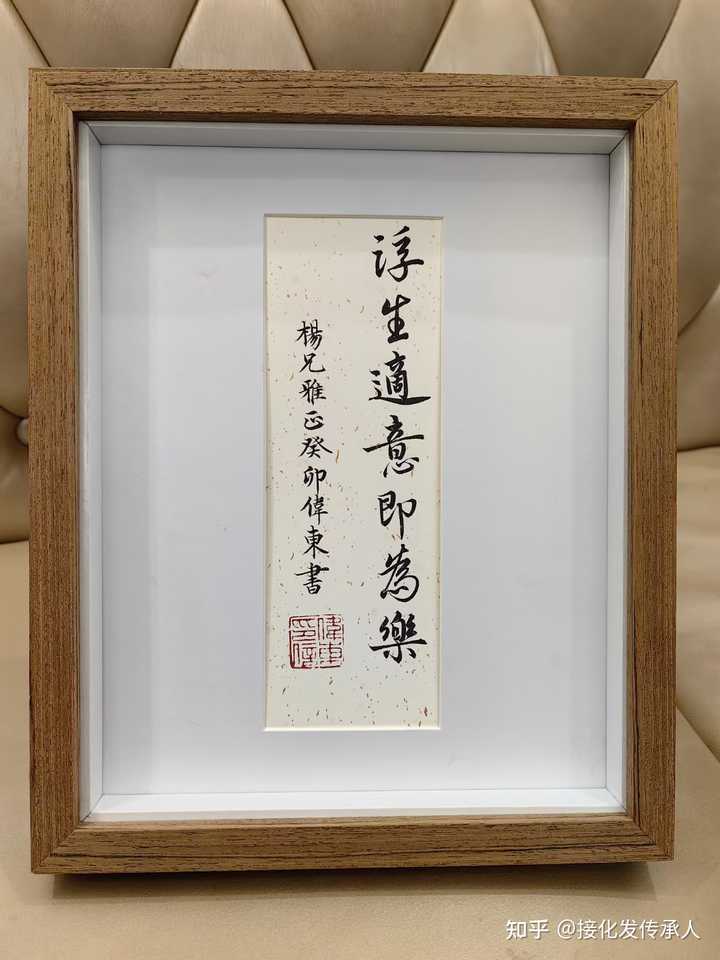 浮生適意即為樂
楊兄雅正癸卯偉東書
知乎 @接化发传承人